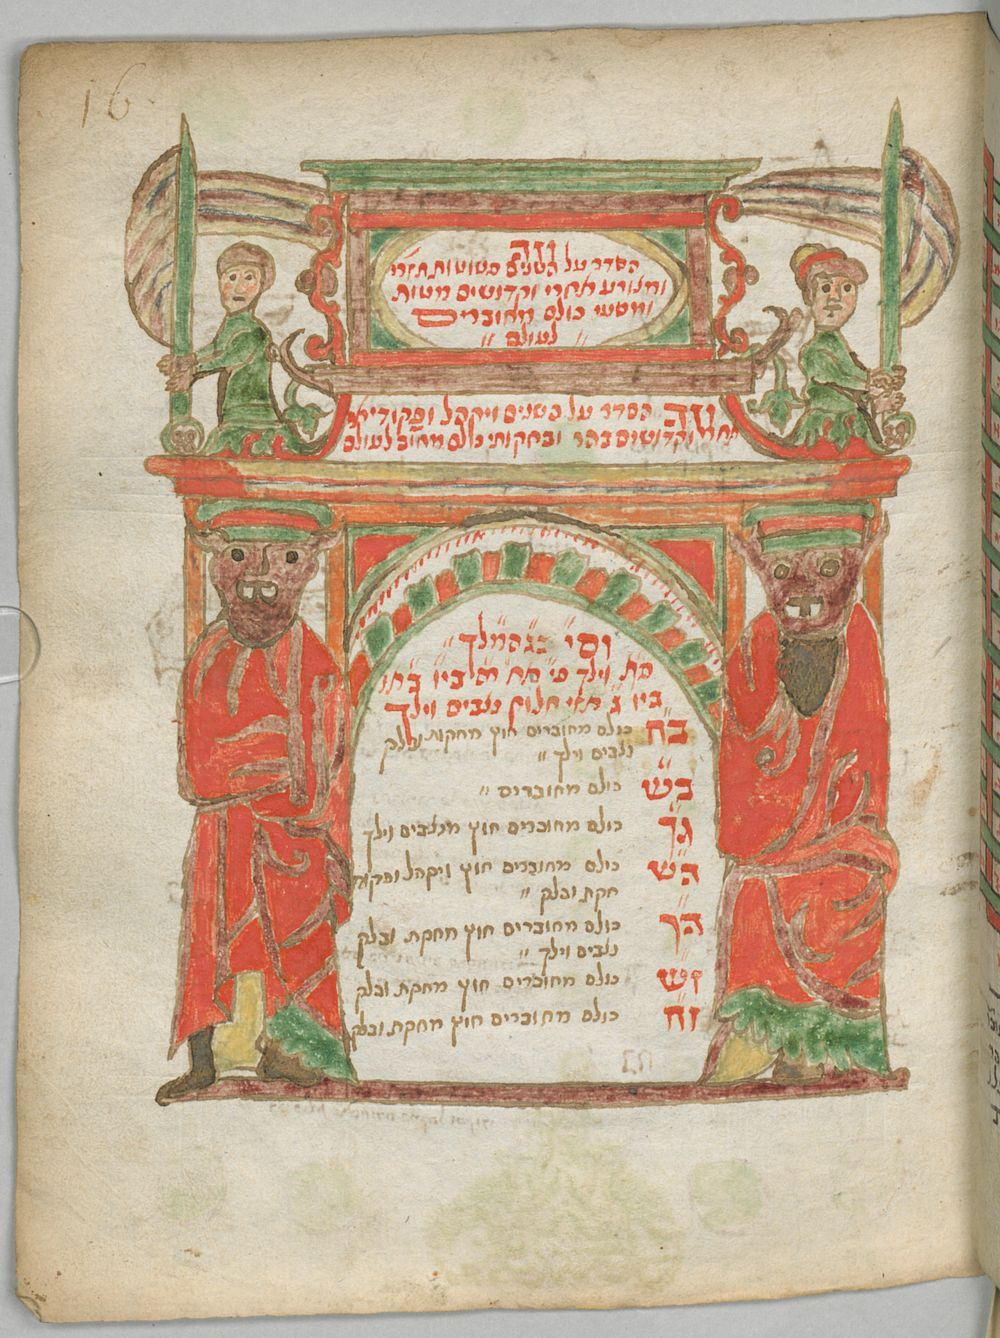 16
וזה
הסדר על השנים פשוטות תזרי
ומצורע אחרי וקדושים מטות
ומסעי כולם מחוברים
לעולם
וזה הסדר על פשנים ויקהל ופקודי
תזרי וקדושים בהר ובחקותי כולם מחוב לעולם
וסי בגהמלך
פת וילך
חלוק נצבים וילך
בח כולם מחוברים חוץ מחקות ובלק
נצבים וילך
בש כולם מחוברים
גך כולם מחוברים חוץ מנצבים וילך
הש כולם מחוברים חוץ ויקהל ופקודי
חקת ובלק
הך כולם מחוברים חוץ מחקת ובלק
נצבים וילך
זש כולם מחוברים חוץ מחקת ובלק
זח כולם מחוברים חוץ מחקת ובלק